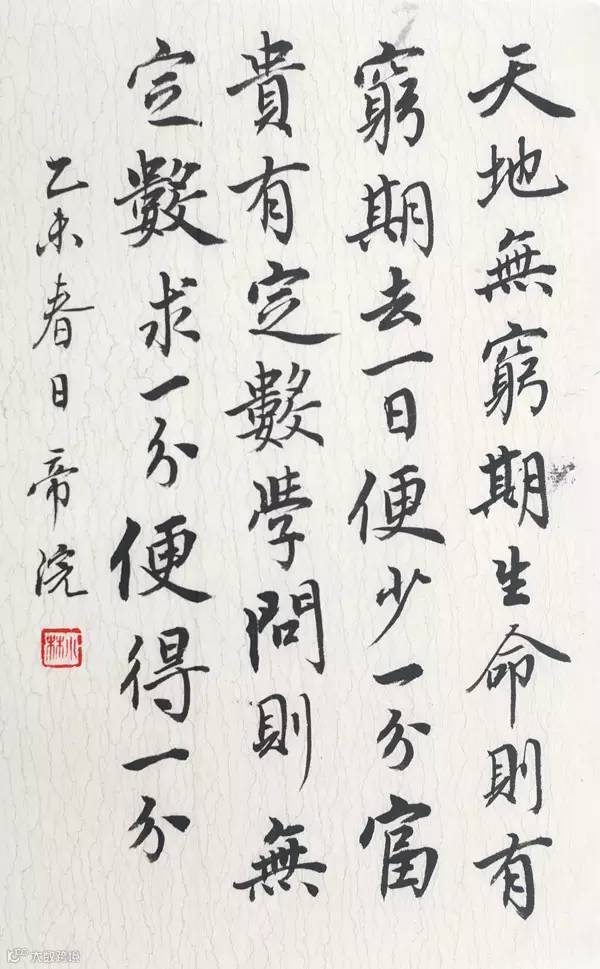 天地無窮期生命則有
窮期去一日便少一分富
貴有定數學問則無
定數求一分便得一分
乙未春日帝浣